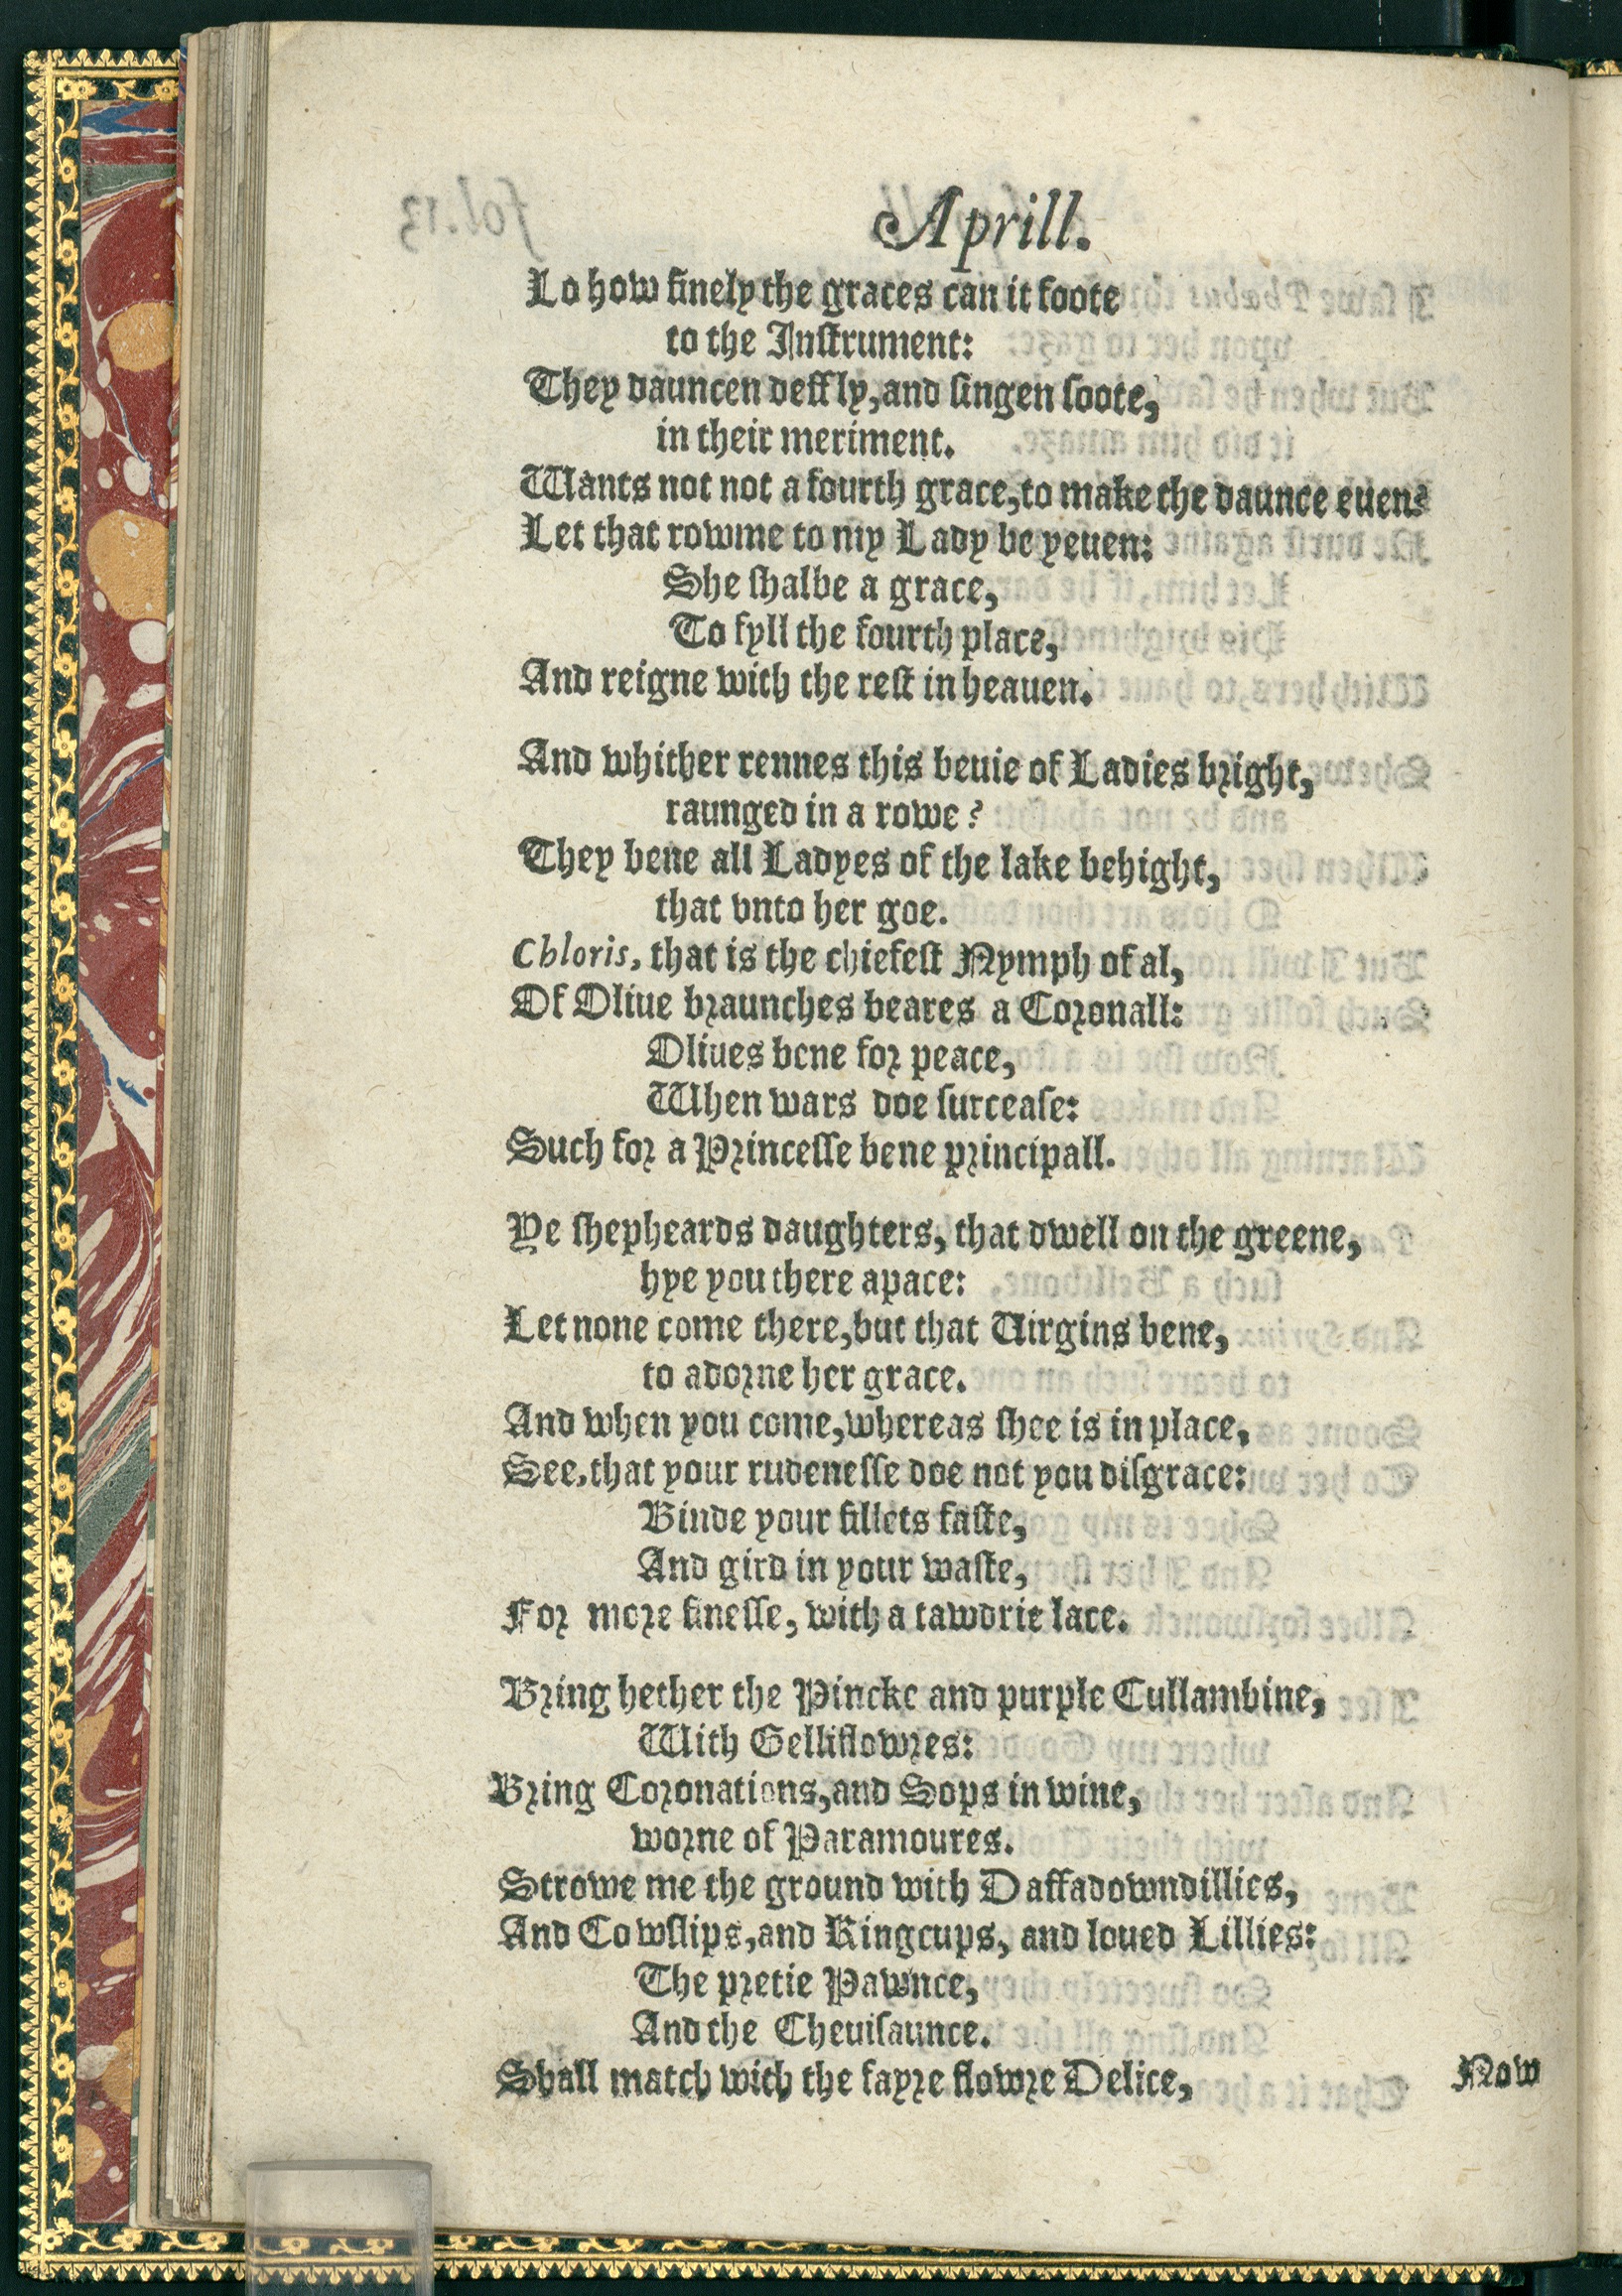 Aprill.
Lo how finely the graces can it foote
to the Inſtrument:
They dauncen deffly, and ſingen ſoote,
in their meriment.
Wants not not a fourth grace, to make the daunce euen?
Let that rowme to my Lady be yeuen:
She ſhalbe a grace,
To fyll the fourth place,
And reigne with the reſt in heauen.
And whither rennes this beuie of Ladies bright,
raunged in a rowe?
They bene all Ladyes of the lake behight,
that vnto her goe.
Chloris, that is the chiefeſt Nymph of al,
Of Oliue braunches beares a Coronall:
Oliues bene for peace,
When wars doe ſurceaſe:
Such for a Princeſſe bene principall.
Ye ſhepheards daughters, that dwell on the greene,
hye you there apace:
Let none come there, but that Virgins bene,
to adorne her grace.
And when you come, whereas ſhee is in place,
See, that your rudeneſſe doe not you diſgrace:
Binde your fillets faſte,
And gird in your waſte,
For more fineſſe, with a tawdrie lace.
Bring hether the Pincke and purple Cullambine,
With Gelliflowres:
Bring Coronations, and Sops in wine,
worne of Paramoures.
Strowe me the ground with Daffadowndillies,
And Cowſlips, and Kingcups, and loued Lillies:
The pretie Pawnce,
And the Cheuiſaunce.
Shall match with the fayre flowre Delice,
Now